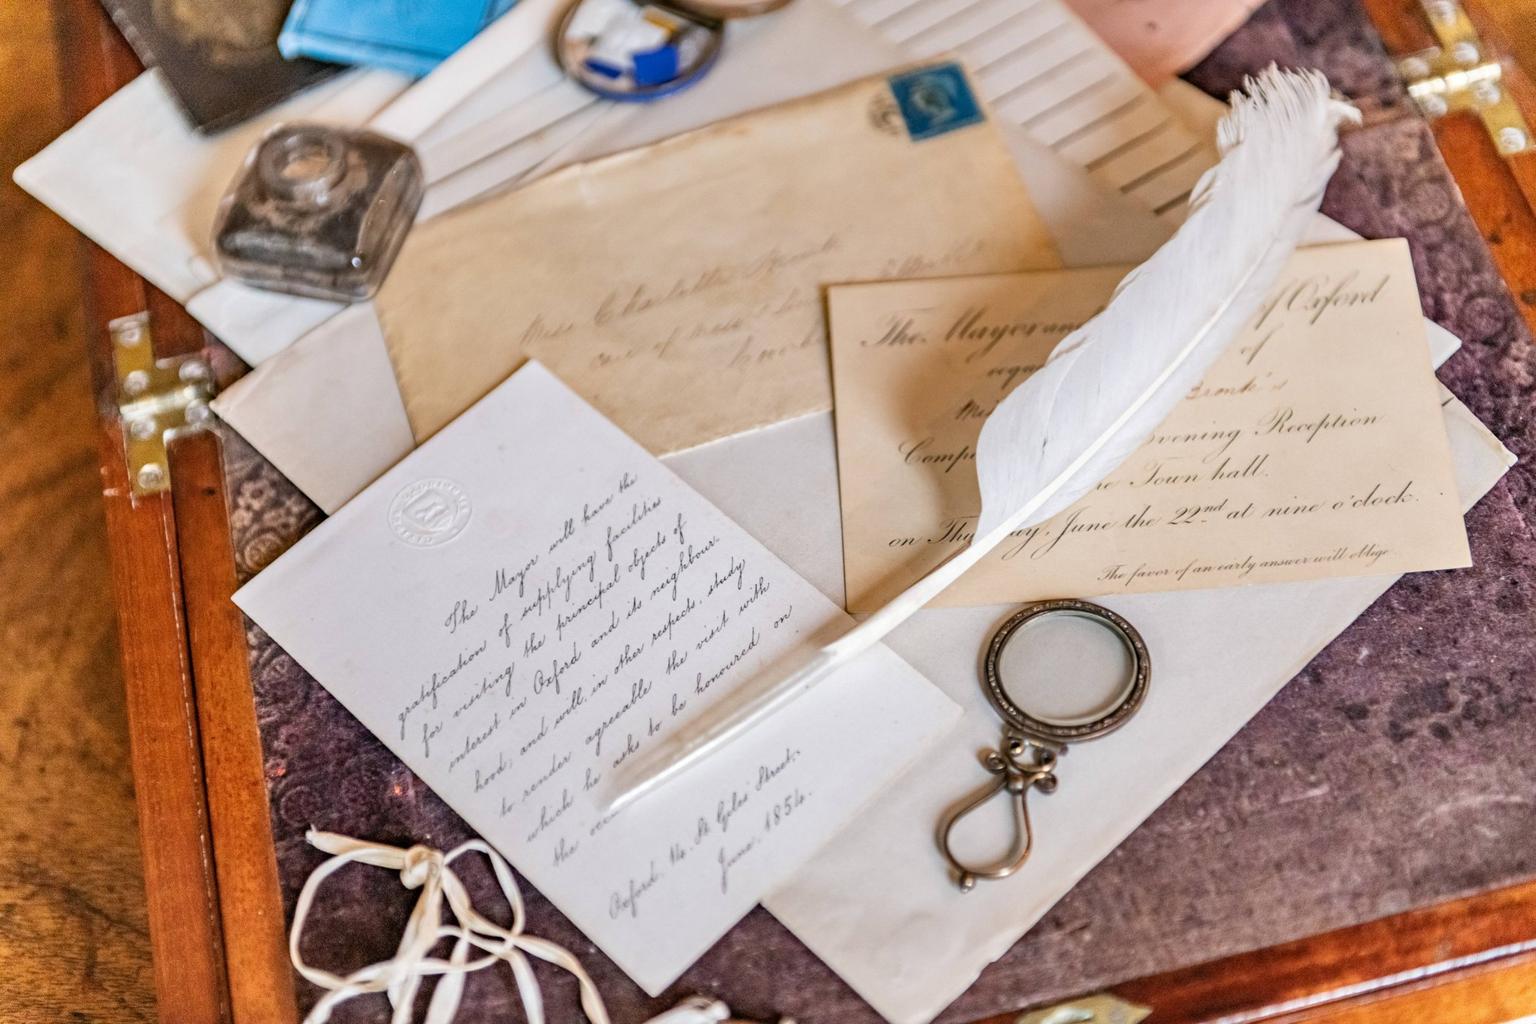 Miss Charlotte
care of
The Mayor and of Oxford
of
Evening Reception
Town hall.
on June the 22nd at nine o'clock.
The favor of an early answer will oblige.
The Mayor will have the
gratification of supplying facilities
for visiting the principal objects of
interest in Oxford and its neighbour-
hood, and will, in other respects, study
to render agreeable the visit with
which he asks to be honoured on
the
Oxford. St. Giles' Street,
June. 1854.